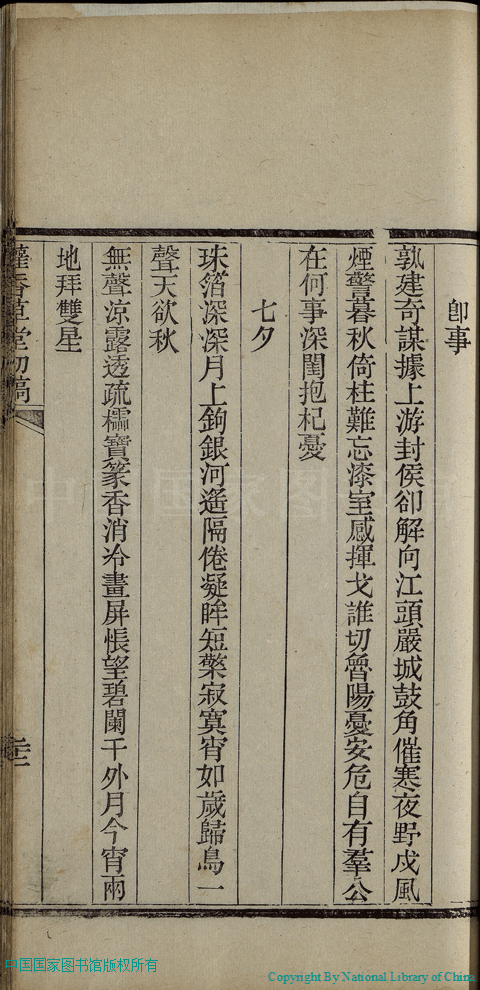 卽事
孰建奇謀據上游封侯卻解向江頭嚴城鼓角催寒夜野戍風
煙警暮秋倚柱難忘漆室感揮戈誰切魯陽憂安危自有羣公
在何事深閨抱杞憂
七夕
珠箔深深月上鉤銀河遙隔倦凝眸短檠寂寞宵如歲歸鳥一
聲天欲秋
無聲涼露透疏櫺寶篆香消冷畫屏悵望碧闌干外月今宵兩
地拜雙星
香草堂初稿
中国国家图书馆版权所有
Copyright By National Library of China